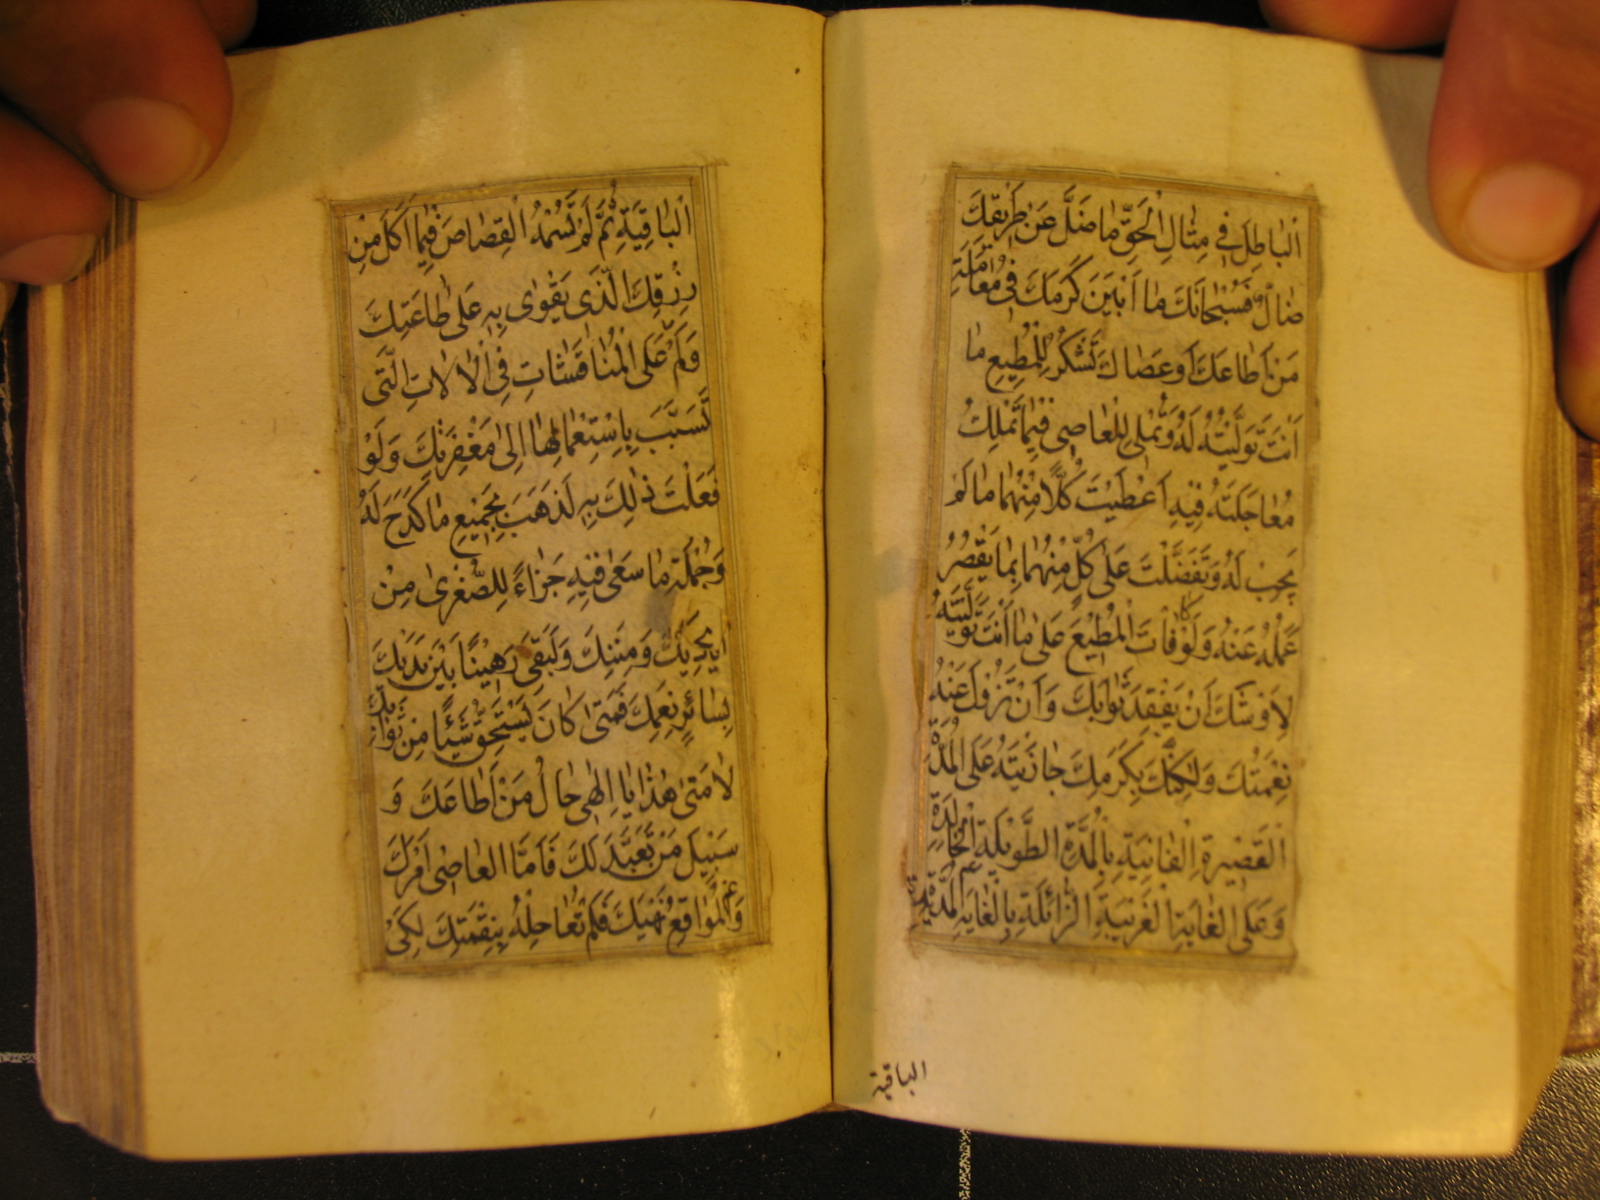 الْبَاطِلَ فِي مِثَالِ الْحَقِّ مَا ضَلَّ عَنْ طَرِيقِكَ
ضَالٌّ فَسُبْحَانَكَ مَا أَبْيَنَ كَرَمَكَ فِي مُعَامَلَةِ
مَنْ أَطَاعَكَ أَوْ عَصَاكَ تَشْكُرُ لِلْمُطِيعِ مَا
أَنْتَ تَوَلَّيْتَهُ لَهُ وَتُمْلِي لِلْعَاصِي فِيمَا تَمْلِكُ
مُعَاجَلَتَهُ فِيهِ أَعْطَيْتَ كُلًّا مِنْهُمَا مَا لَمْ
يَجِبْ لَهُ وَتَفَضَّلْتَ عَلَى كُلٍّ مِنْهُمَا بِمَا يَقْصُرُ
عَمَلُهُ عَنْهُ وَلَوْ كَافَأْتَ الْمُطِيعَ عَلَى مَا أَنْتَ تَوَلَّيْتَهُ
لَأَوْشَكَ أَنْ يَفْقِدَ ثَوَابَكَ وَأَنْ تَزُولَ عَنْهُ
نِعْمَتُكَ وَلَكِنَّكَ بِكَرَمِكَ جَازَيْتَهُ عَلَى الْمُدَّةِ
الْقَصِيرَةِ الْفَانِيَةِ بِالْمُدَّةِ الطَّوِيلَةِ الْخَالِدَةِ
وَعَلَى الْغَايَةِ الْقَرِيبَةِ الزَّائِلَةِ بِالْغَايَةِ الْمَدِيدَةِ
الباقية
الْبَاقِيَةِ ثُمَّ لَمْ تَسُمْهُ الْقِصَاصَ فِيمَا أَكَلَ مِنْ
رِزْقِكَ الَّذِي يَقْوَى بِهِ عَلَى طَاعَتِكَ
وَلَمْ عَلَى الْمُنَاقَشَاتِ فِي الْآلَاتِ الَّتِي
تَسَبَّبَ بِاسْتِعْمَالِهَا إِلَى مَغْفِرَتِكَ وَلَوْ
فَعَلْتَ ذَلِكَ بِهِ لَذَهَبَ بِجَمِيعِ مَا كَدَحَ لَهُ
وَجُمْلَةِ مَا سَعَى فِيهِ جَزَاءً لِلصُّغْرَى مِنْ
أَيَادِيكَ وَمِنَنِكَ وَلَبَقِيَ رَهِينًا بَيْنَ يَدَيْكَ
بِسَائِرِ نِعَمِكَ فَمَتَى كَانَ يَسْتَحِقُّ شَيْئًا مِنْ ثَوَابِكَ
لَا مَتَى هَذَا يَا إِلَهِي حَالُ مَنْ أَطَاعَكَ وَ
سَبِيلُ مَنْ تَعَبَّدَ لَكَ فَأَمَّا الْعَاصِي أَمْرَكَ
وَالْمُوَاقِعُ نَهْيَكَ فَلَمْ تُعَاجِلْهُ بِنِقْمَتِكَ لِكَيْ